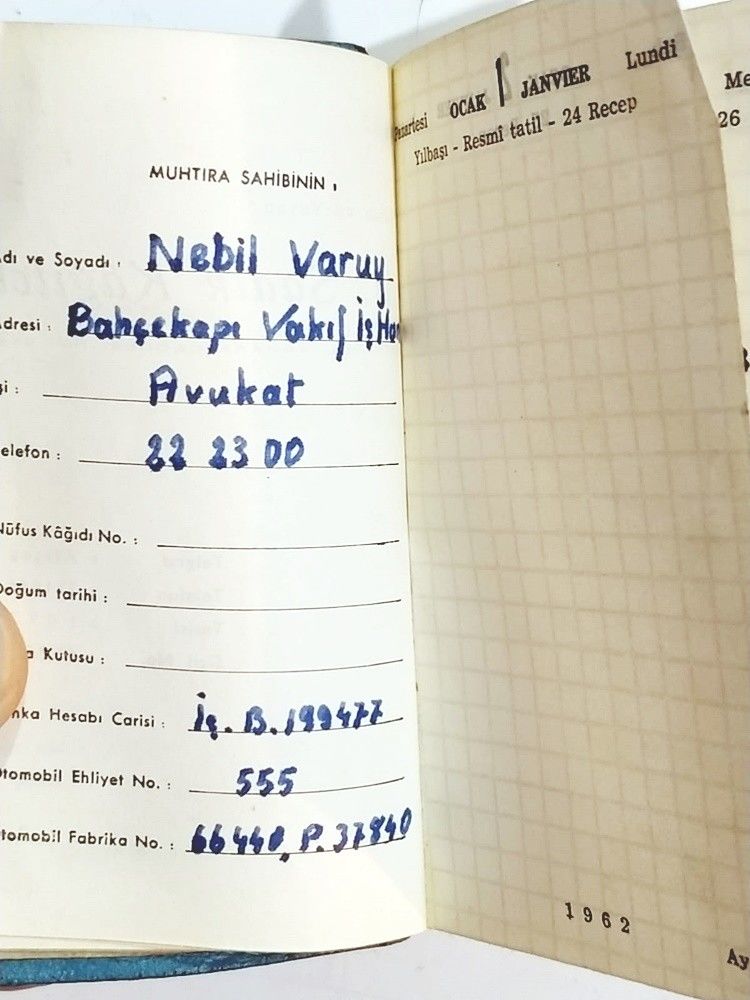 MUHTIRA SAHİBİNİN,
dı ve Soyadı : Nebil Varuy
dresi : Bahçekapı Vakıf İş Ha
şi : Avukat
elefon : 22 23 00
Nüfus Kâğıdı No. :
Doğum tarihi :
a Kutusu :
nka Hesabı Carisi : İş. B. 199477
Otomobil Ehliyet No. : 555
tomobil Fabrika No. : 66440, P. 37840
Pazartesi OCAK 1 JANVIER Lundi
Yılbaşı - Resmî tatil - 24 Recep
1962
Me
26
Ay